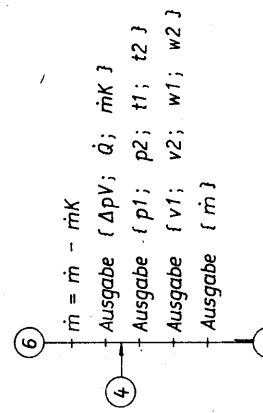 6
ṁ = ṁ - ṁK
Ausgabe {ΔpV; Q̇; ṁK}
4
Ausgabe {p1; p2; t1; t2}
Ausgabe {v1; v2; w1; w2}
Ausgabe {ṁ}